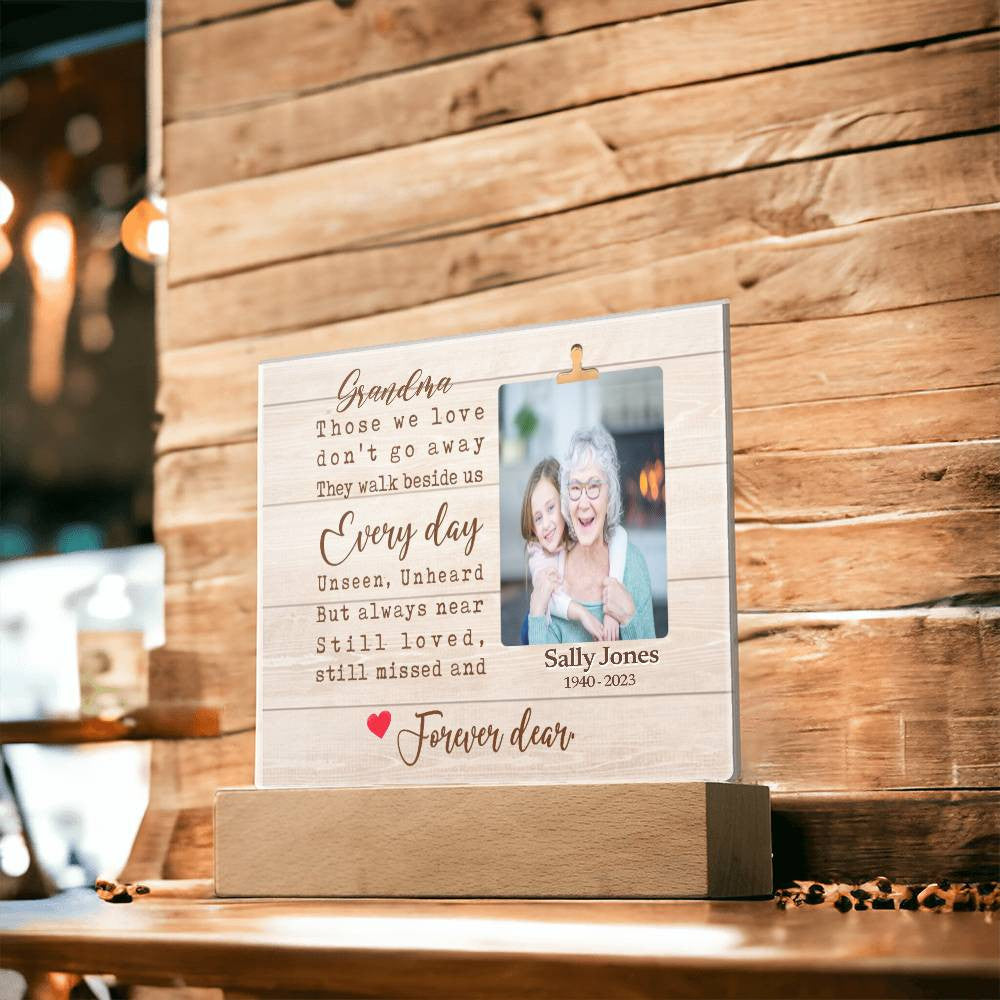 Grandma
Those we love
don't go away
They walk beside us
Every day
Unseen, Unheard
But always near
Still loved,
still missed and
Forever dear.
Sally Jones
1940-2023